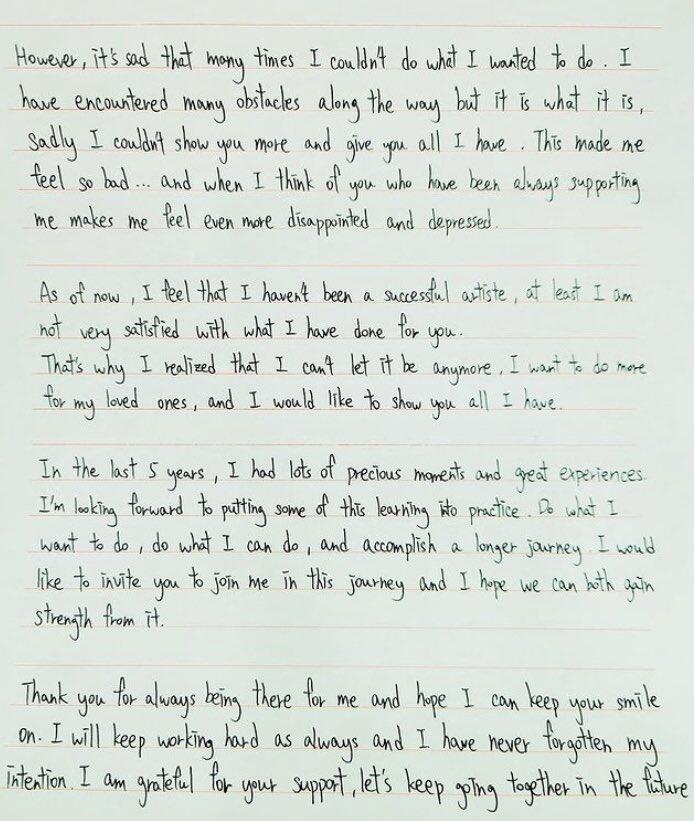 However, it's sad that many times I couldn't do what I wanted to do. I
have encountered many obstacles along the way but it is what it is,
sadly I couldn't show you more and give you all I have. This made me
feel so bad... and when I think of you who have been always supporting
me makes me feel even more disappointed and depressed.
As of now, I feel that I haven't been a successful artiste, at least I am
not very satisfied with what I have done for you.
That's why I realized that I can't let it be anymore, I want to do more
for my loved ones, and I would like to show you all I have.
In the last 5 years, I had lots of precious moments and great experiences.
I'm looking forward to putting some of this learning into practice. Do what I
want to do, do what I can do, and accomplish a longer journey. I would
like to invite you to join me in this journey and I hope we can both gain
strength from it.
Thank you for always being there for me and hope I can keep your smile
on. I will keep working hard as always and I have never forgotten my
intention. I am grateful for your support, let's keep going together in the future